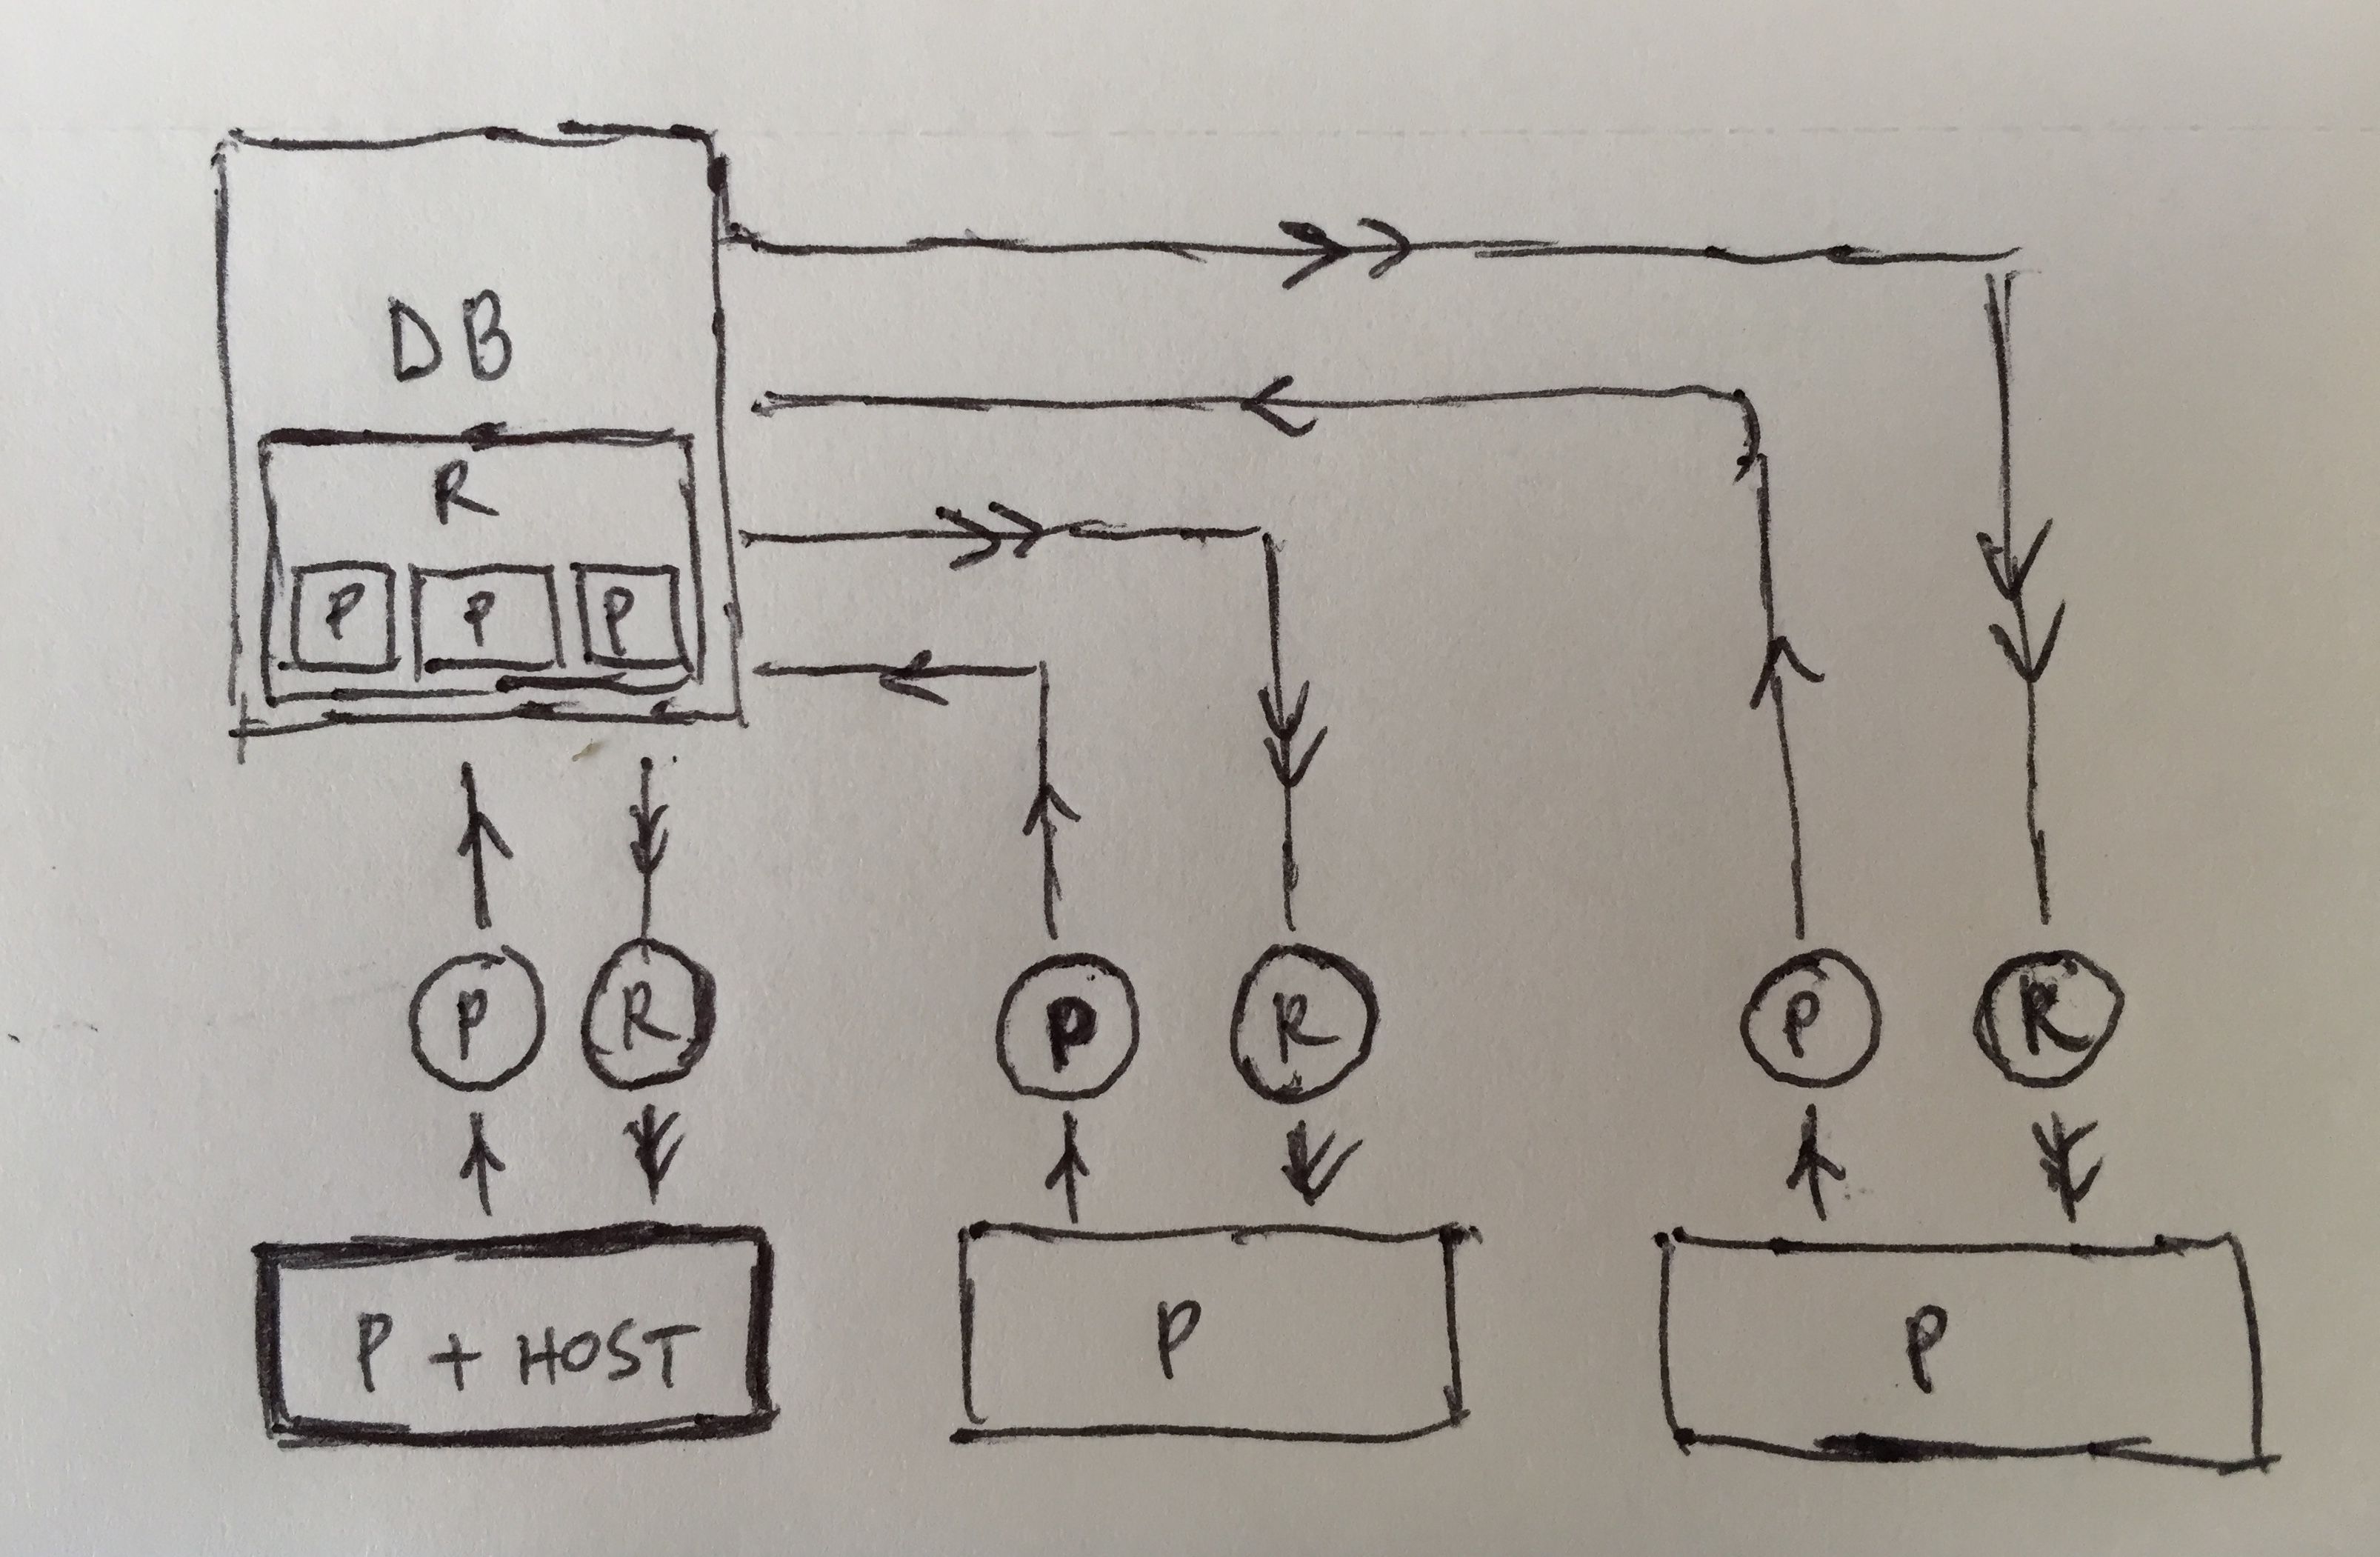 DB
R
P P P
P R P R P R
P + HOST P P